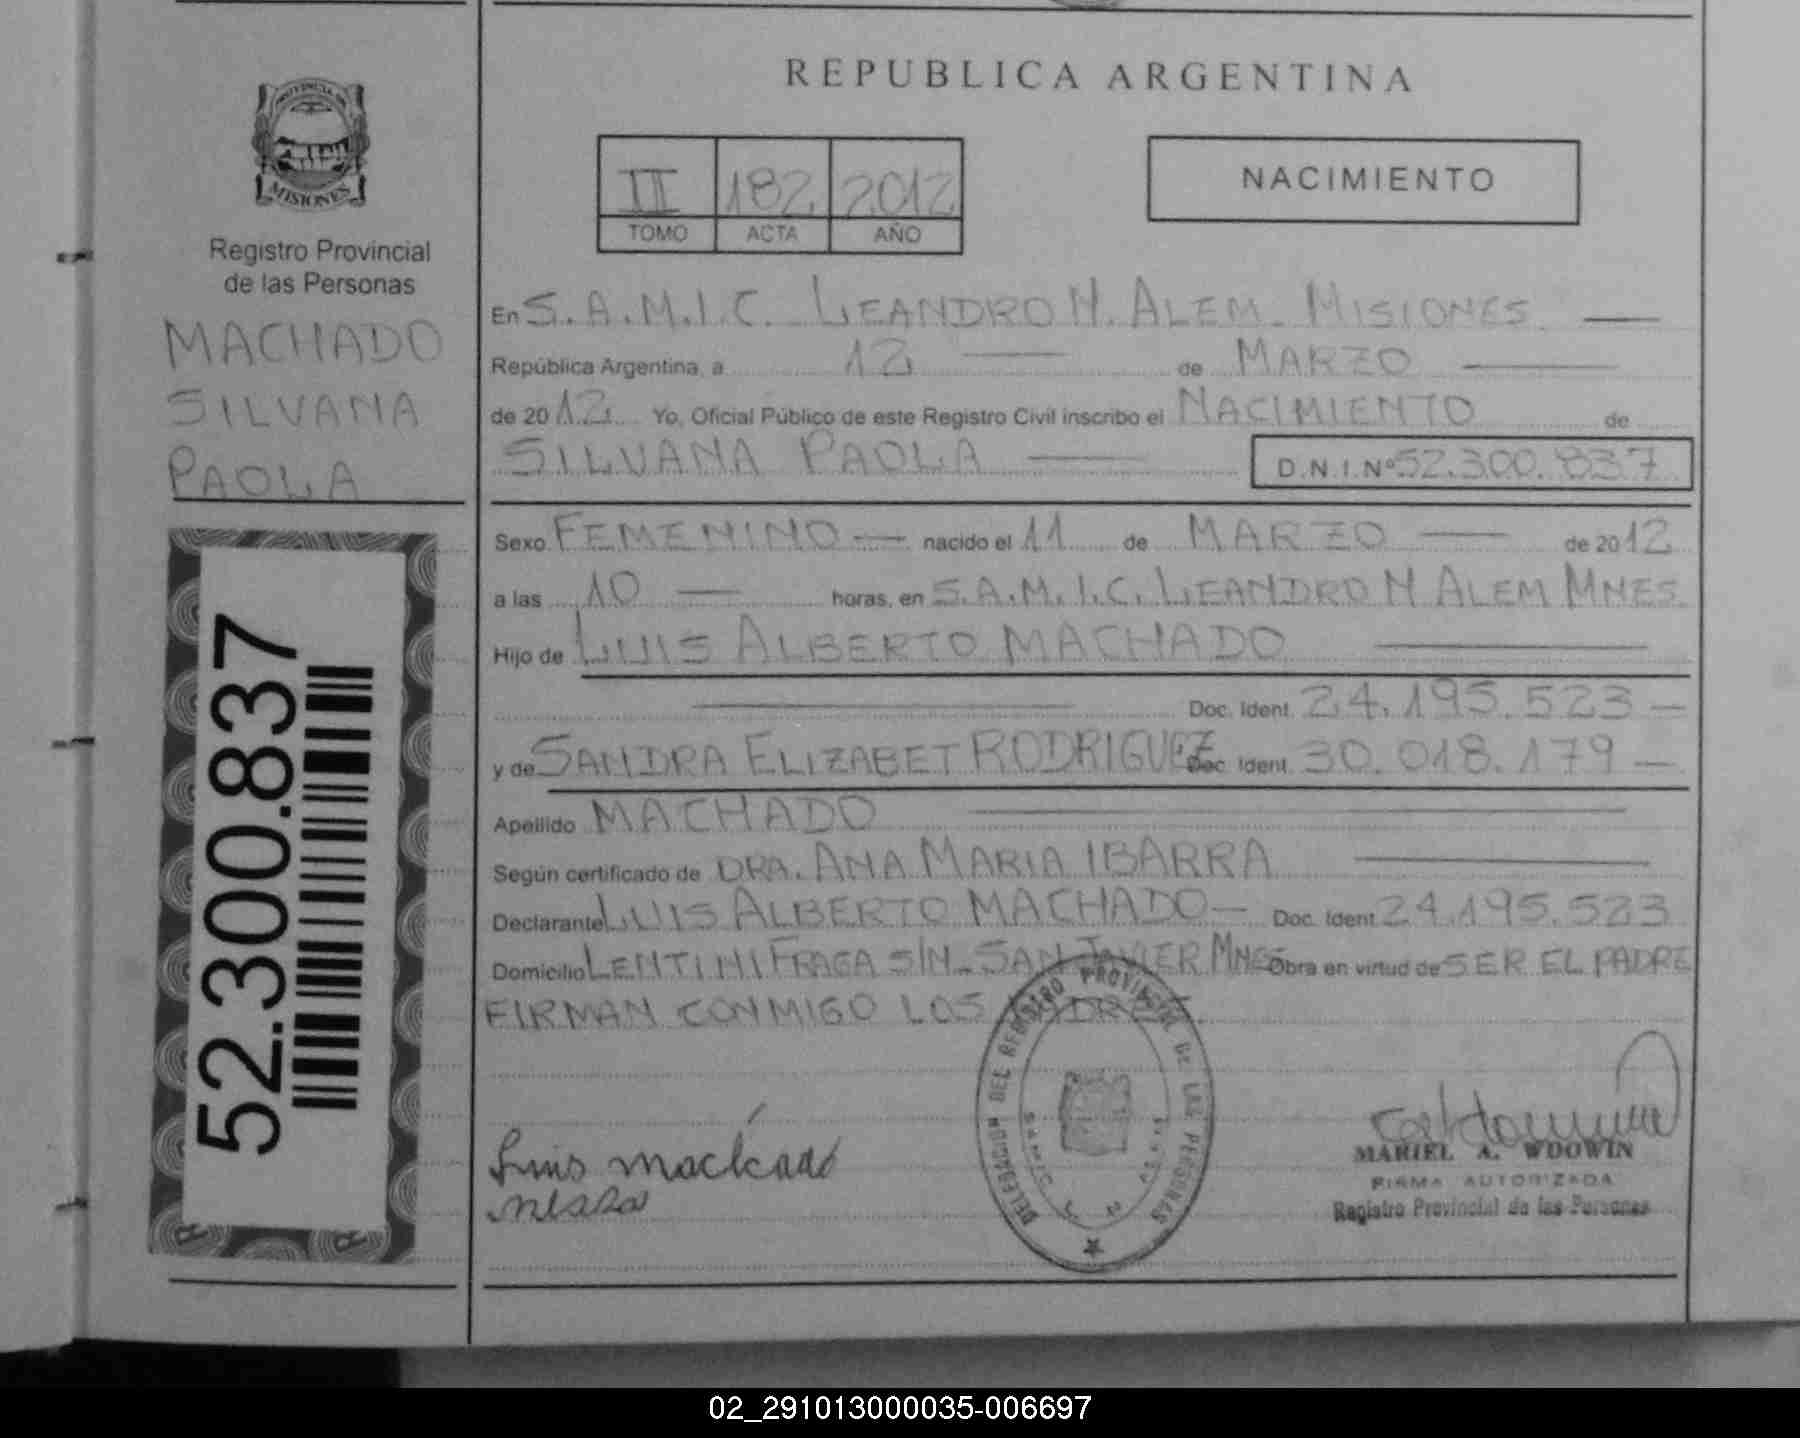 REPUBLICA ARGENTINA
PROVINCIA DE
MISIONES
Registro Provincial
de las Personas
MACHADO
SILVANA
PAOLA
52.300.837
II 182 2012
TOMO ACTA AÑO
NACIMIENTO
En S.A.M.I.C. LEANDRO N. ALEM. MISIONES
República Argentina, a 12 de MARZO
de 2012 Yo, Oficial Público de este Registro Civil inscribo el NACIMIENTO de
SILVANA PAOLA D.N.I.Nº 52.300.837
Sexo FEMENINO nacido el 11 de MARZO de 2012
a las 10 horas, en S.A.M.I.C. LEANDRO N ALEM MNES.
Hijo de LUIS ALBERTO MACHADO
Doc. Ident. 24.195.523
y de SANDRA ELIZABET RODRIGUEZ Doc. Ident. 30.018.179
Apellido MACHADO
Según certificado de DRA. ANA MARIA IBARRA
Declarante LUIS ALBERTO MACHADO Doc. Ident. 24.195.523
Domicilio LENTINI FRAGA S/N. SAN JAVIER MNES Obra en virtud de SER EL PADRE
FIRMAN CONMIGO LOS PADRES.
DELEGACION DEL REGISTRO PROVINCIAL DE LAS PERSONAS
Luis machado
MARIEL A. WDOWIN
FIRMA AUTORIZADA
Registro Provincial de las Personas
02_291013000035-006697